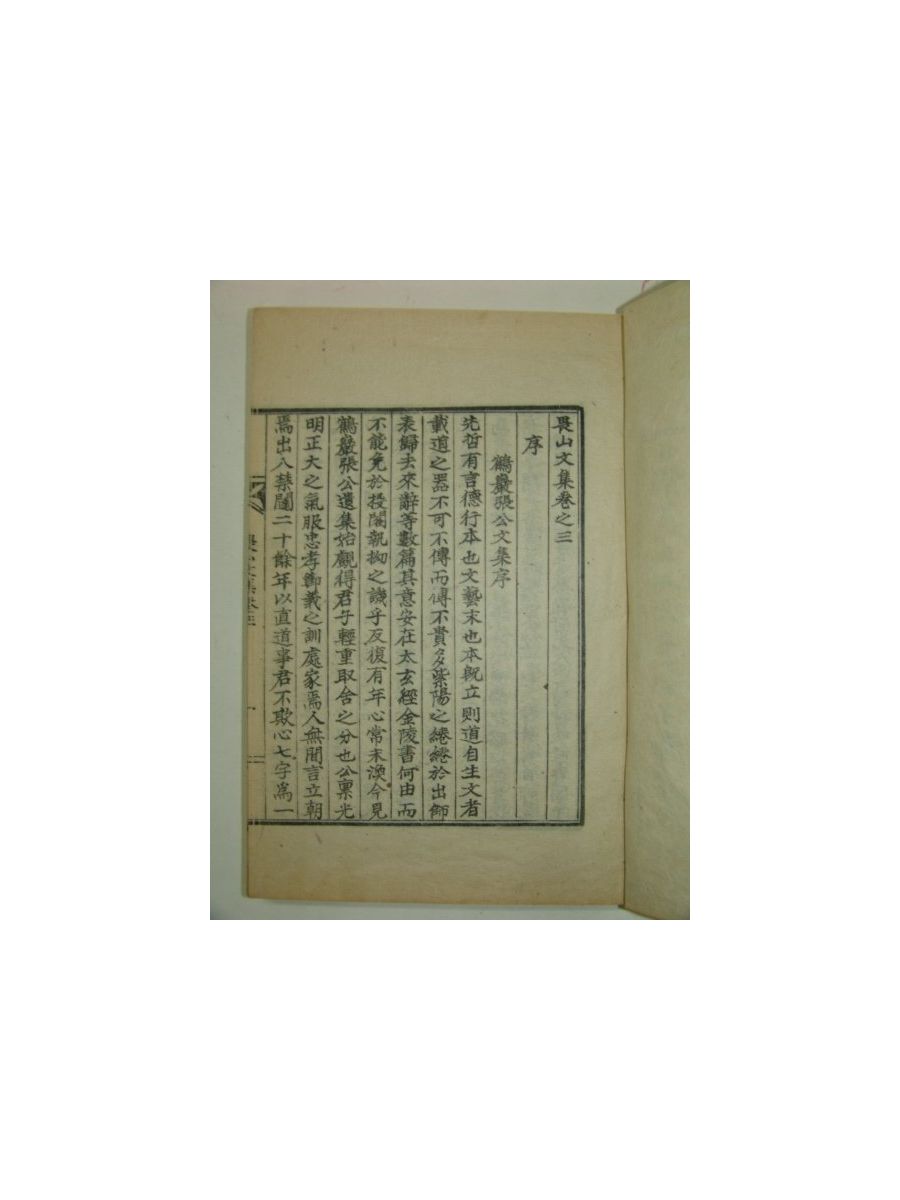 畏山文集卷之三
序
鶴巖張公文集序
先哲有言德行本也文藝末也本旣立則道自生文者
載道之器不可不傳而傳不貴多紫陽之綣綣於出師
表歸去來辭等數篇其意安在太玄經金陵書何由而
不能免於投閣執拗之譏乎反復有年心常未渙今見
鶴巖張公遺集始觀得君子輕重取舍之分也公稟光
明正大之氣服忠孝節義之訓處家爲人無間言立朝
爲出入禁闥二十餘年以直道事君不欺心七字爲一